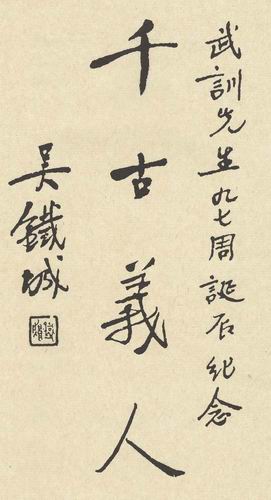 武訓先生九七周誕辰纪念
千古義人
吳鐵城